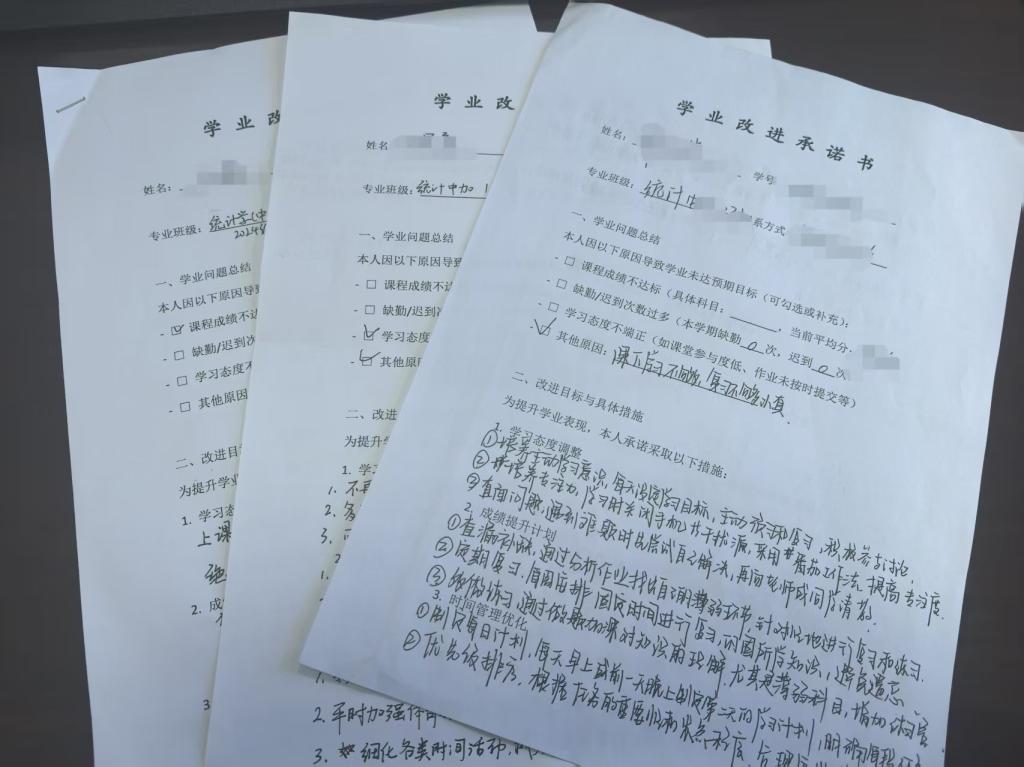 学业改
姓名：
专业班级：统计学(中
一、学业问题总结
本人因以下原因导致
- ☑ 课程成绩不达
- □ 缺勤/迟到
- □ 学习态度不
- □ 其他原因
二、改进目
为提升学业
1. 学习态
上课
2. 成
3
学业改
姓名
专业班级：统计中加
一、学业问题总结
本人因以下原因导致
- □ 课程成绩不达
- □ 缺勤/迟到次
- ☑ 学习态度不
- ☑ 其他原因
二、改进
为提升学
1. 学习
1. 不再
2.
3.
2. 平时加强体育
3. 细化各类时间活动
学业改进承诺书
姓名： 学号
专业班级：统计 系方式
一、学业问题总结
本人因以下原因导致学业未达预期目标（可勾选或补充）：
- □ 课程成绩不达标（具体科目： ，当前平均分
- □ 缺勤/迟到次数过多（本学期缺勤 0 次，迟到 0 次
- □ 学习态度不端正（如课堂参与度低、作业未按时提交等）
- ☑ 其他原因：课下学习不够，复习不够认真
二、改进目标与具体措施
为提升学业表现，本人承诺采取以下措施：
1. 学习态度调整
①培养主动学习意识，每天设定学习目标，主动预习和复习，积极参与讨论
②培养专注力，学习时关闭手机等干扰源，采用番茄工作法，提高专注度
③直面问题，遇到难题时先尝试自己解决，再向老师或同学请教
2. 成绩提升计划
①查漏补缺，通过分析作业找出自己的薄弱环节，针对性地进行复习和练习
②定期复习，每周安排固定时间进行复习，巩固所学知识，避免遗忘
③做练习，通过做题加深对知识的理解，尤其是薄弱科目，增加练习量
3. 时间管理优化
①制定每日计划，每天早上或前一天晚上制定第二天的学习计划，明确
②优先级排序，根据任务的重要性和紧急程度，合理